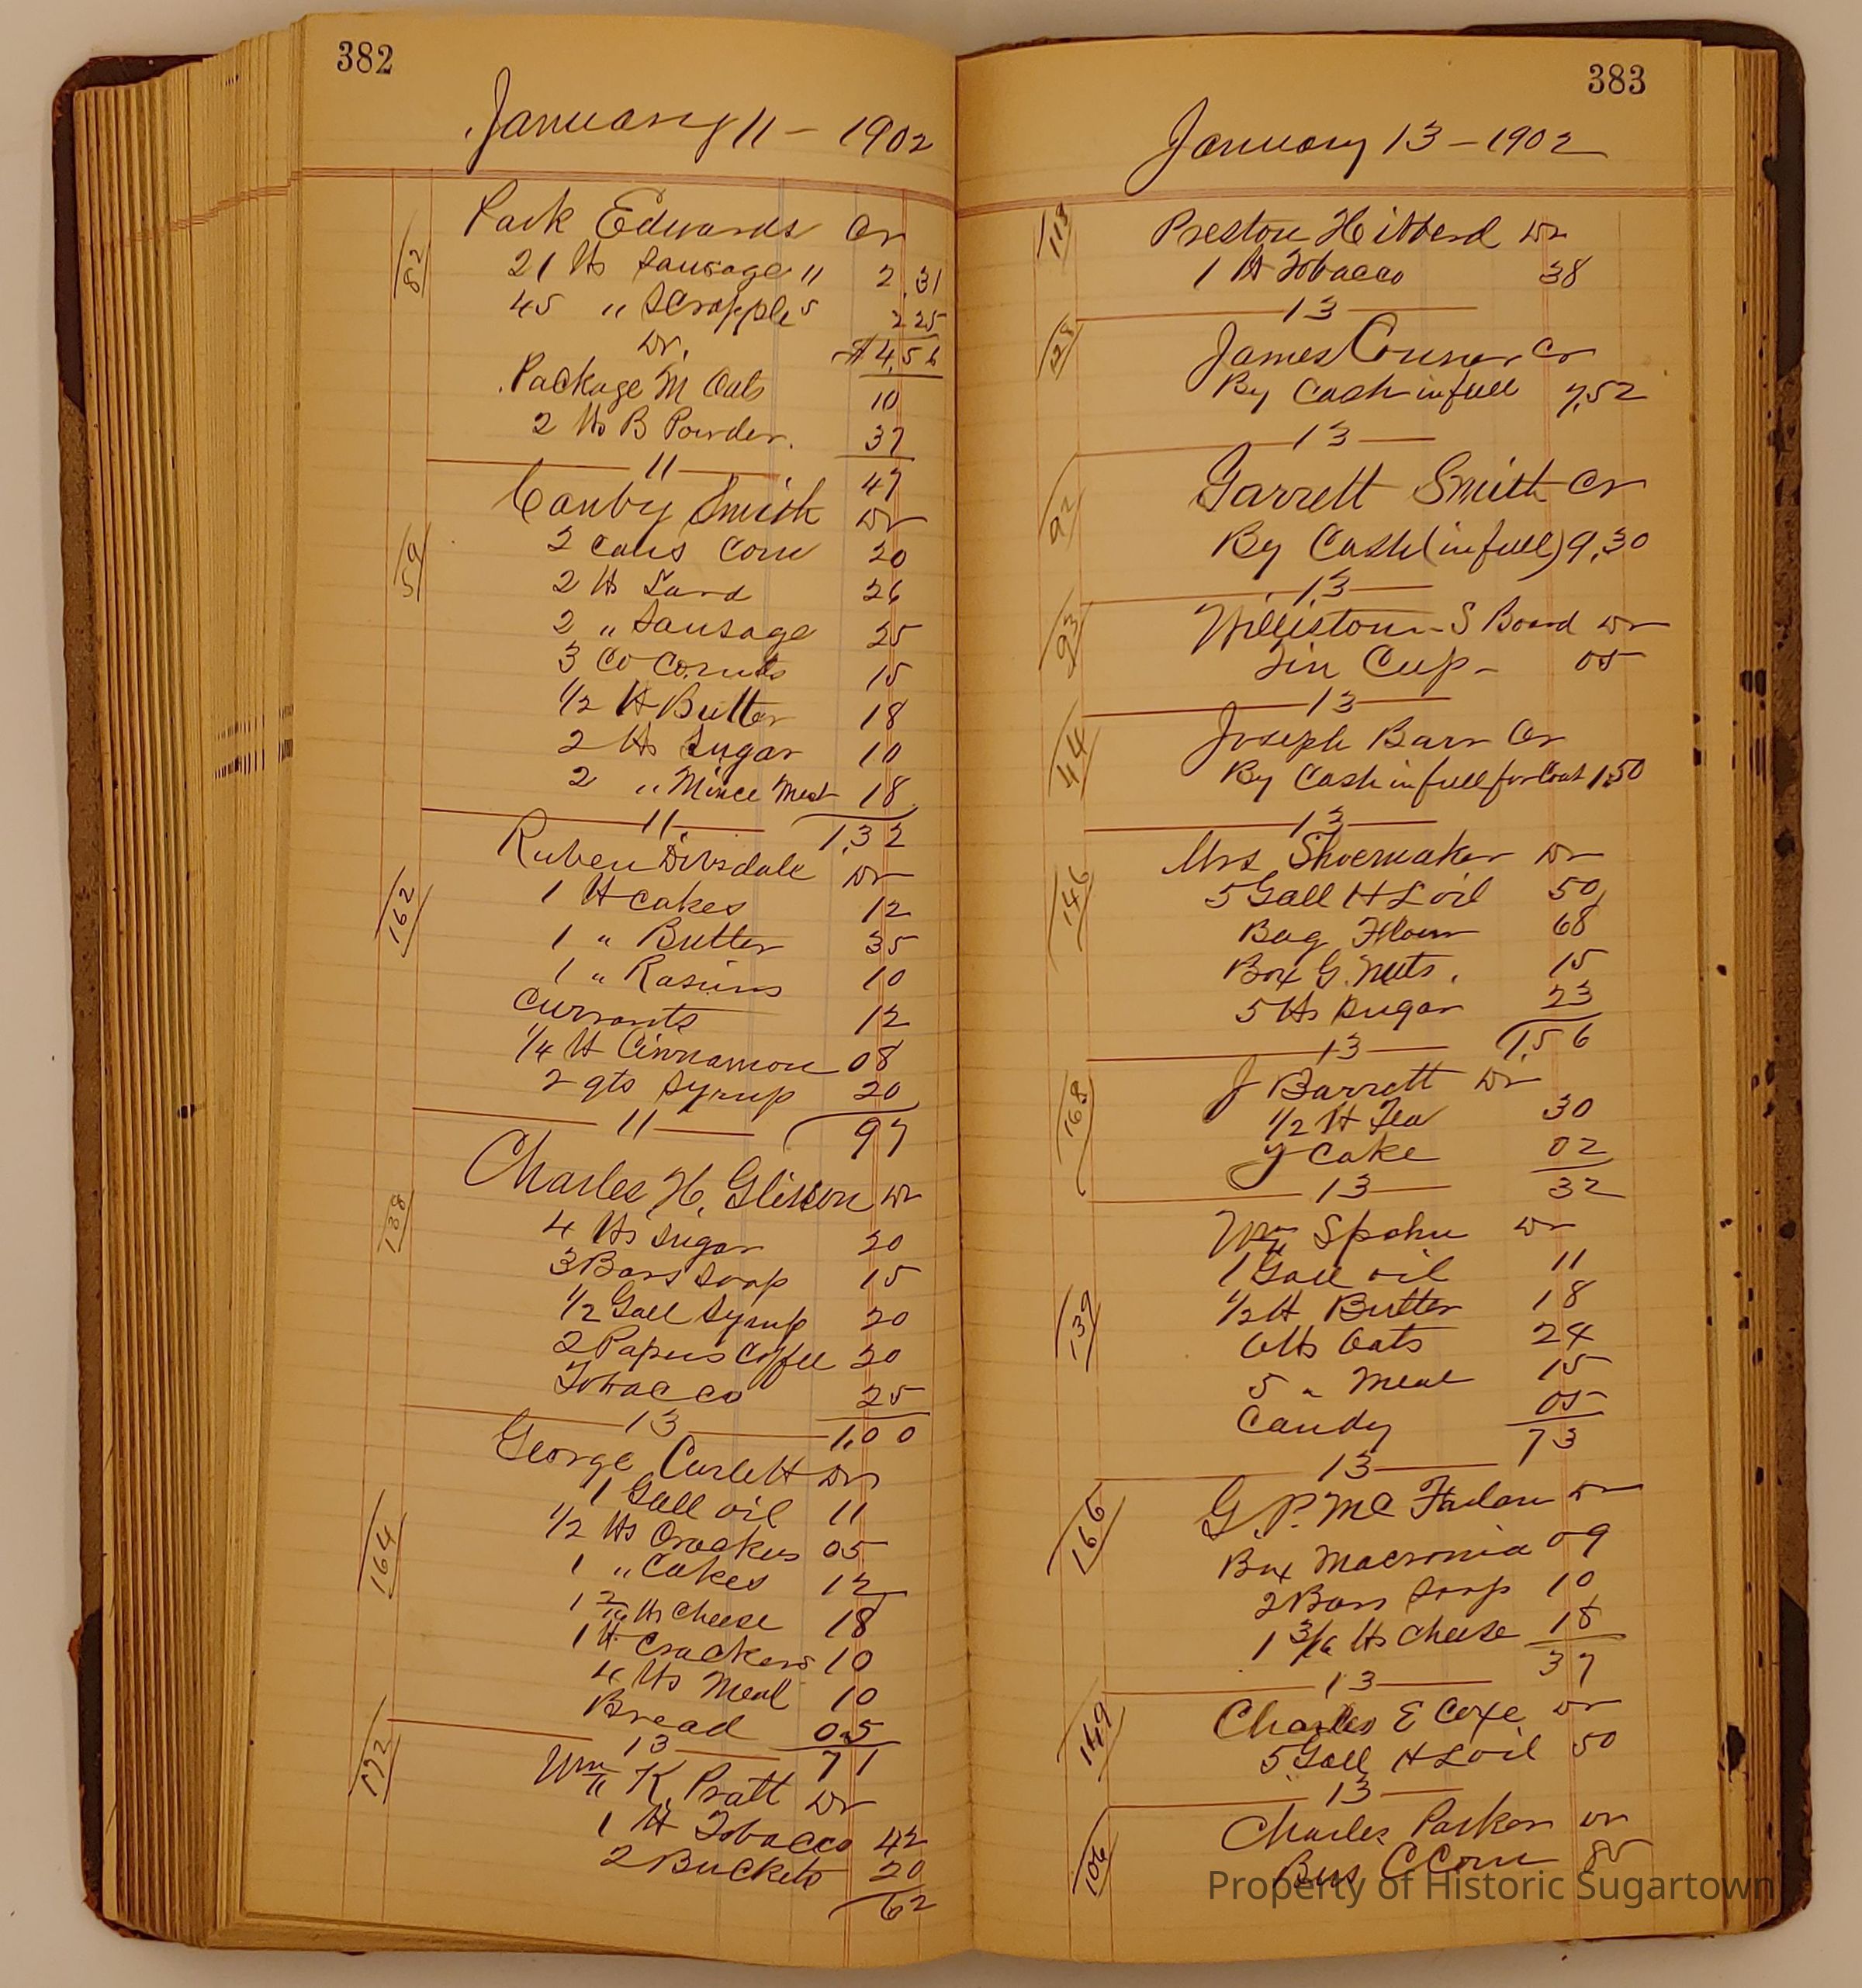 382
January 11 - 1902
82
Park Edwards Cr
21 lbs Sausage " 2.31
45 " Scrapple s 2 25
Dr. $4.56
Package M Oats 10
2 lbs B Powder. 37
11
47
59
Canby Smith Dr
2 cans Corn 20
2 lb Lard 26
2 " Sausage 25
3 Co Co.nuts 15
1/2 lb Butter 18
2 lbs Sugar 10
2 " Mince Meat 18
11
1.32
162
Ruben Dibsdale Dr
1 lb cakes 12
1 " Butter 35
1 " Rasins 10
Currants 12
1/4 lb Cinnamon 08
2 qts Syrup 20
11
97
138
Charles H. Dr
4 lbs Sugar 20
3 Bars Soap 15
1/2 Gall Syrup 20
2 Papers Coffee 20
Tobacco 25
13
1.00
164
George Carlett Dr
1 Gall oil 11
1/2 lbs Crackers 05
1 " Cakes 12
1 lbs Cheese 18
1 lb Crackers 10
4 lbs Meal 10
Bread 05
13
71
172
Wm K. Pratt Dr
1 lb Tobacco 42
2 Buckets 20
62
383
January 13 - 1902
118
Preston Hibberd Dr
1 lb Tobacco 38
13
128
James Connor Cr
By Cash in full 7.52
13
92
Garrett Smith Cr
By Cash (in full) 9.30
13
93
Willistown S Board Dr
Tin Cup - 05
13
44
Joseph Barr Cr
By Cash in full for Coat 1.50
13
146
Mrs Shoemaker Dr
5 Gall H L oil 50
Bag Flour 68
Box G. Nuts. 15
5 lbs Sugar 23
13
1.56
168
J Barrett Dr
1/2 lb Tea 30
Y Cake 02
13
32
139
Wm Spohn Dr
1 Gall oil 11
1/2 lb Butter 18
6 lbs Oats 24
5 " Meal 15
Candy 05
73
13
166
G. P. Mc Farlan Dr
Box Macronia 09
2 Bars Soap 10
1 3/16 lbs Cheese 18
13
37
149
Charles E Coxe Dr
5 Gall H L oil 50
13
106
Charles Parker Dr
Bus C Corn 85
Property of Historic Sugartown